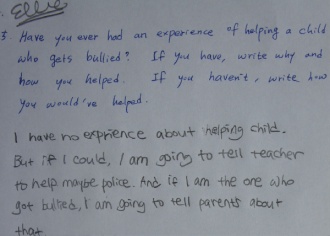 Ellie
3. Have you ever had an experience of helping a child
who gets bullied? If you have, write why and
how you helped. If you haven't, write how
you would've helped.
I have no exprience about helping child.
But if I could, I am going to tell teacher
to help maybe police. And if I am the one who
got bullied, I am going to tell parents about
that.